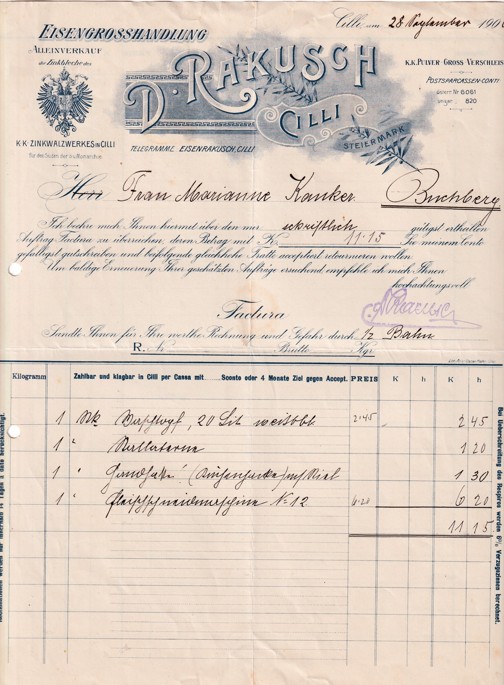 EISENGROSSHANDLUNG
Cilli, am 28 September 190
ALLEINVERKAUF
der Zinkbleche des
K.K. ZINKWALZWERKES IN CILLI
D. RAKUSCH
CILLI
STEIERMARK
K.K. PULVER GROSS VERSCHLEISS
POSTSPARCASSEN-CONTI
820
TELEGRAMME EISENRAKUSCH, CILLI
Herr Frau Marianne Kanker Buchberg
Ich beehre mich Ihnen hiermit über den mir schriftlich gütigst ertheilten
Auftrag Factura zu überreichen, deren Betrag mit K 11·15 Sie meinem Conto
gefälligst gutschreiben und beifolgende gleichliche Ratte acceptirt retourniren wollen.
Um baldige Erneuerung Ihrer geschätzten Aufträge ersuchend empfehle ich mich Ihnen
hochachtungsvoll
D Rakusch
Factura
Sandte Ihnen für Ihre werthe Rechnung und Gefahr durch p/ Bahn
R. Nr. Brutto Kgr.
Kilogramm Zahlbar und klagbar in Cilli per Cassa mit Sconto oder 4 Monate Ziel gegen Accept. PREIS K h K h
1 Stk 20 Lit 2·45 2 45
1 " 1 20
1 " 1 30
1 " Fleischschneidmaschine No 12 6·20 6 20
11 15
Bei Ueberschreitung des Respiros werden 6% Verzugszinsen berechnet.